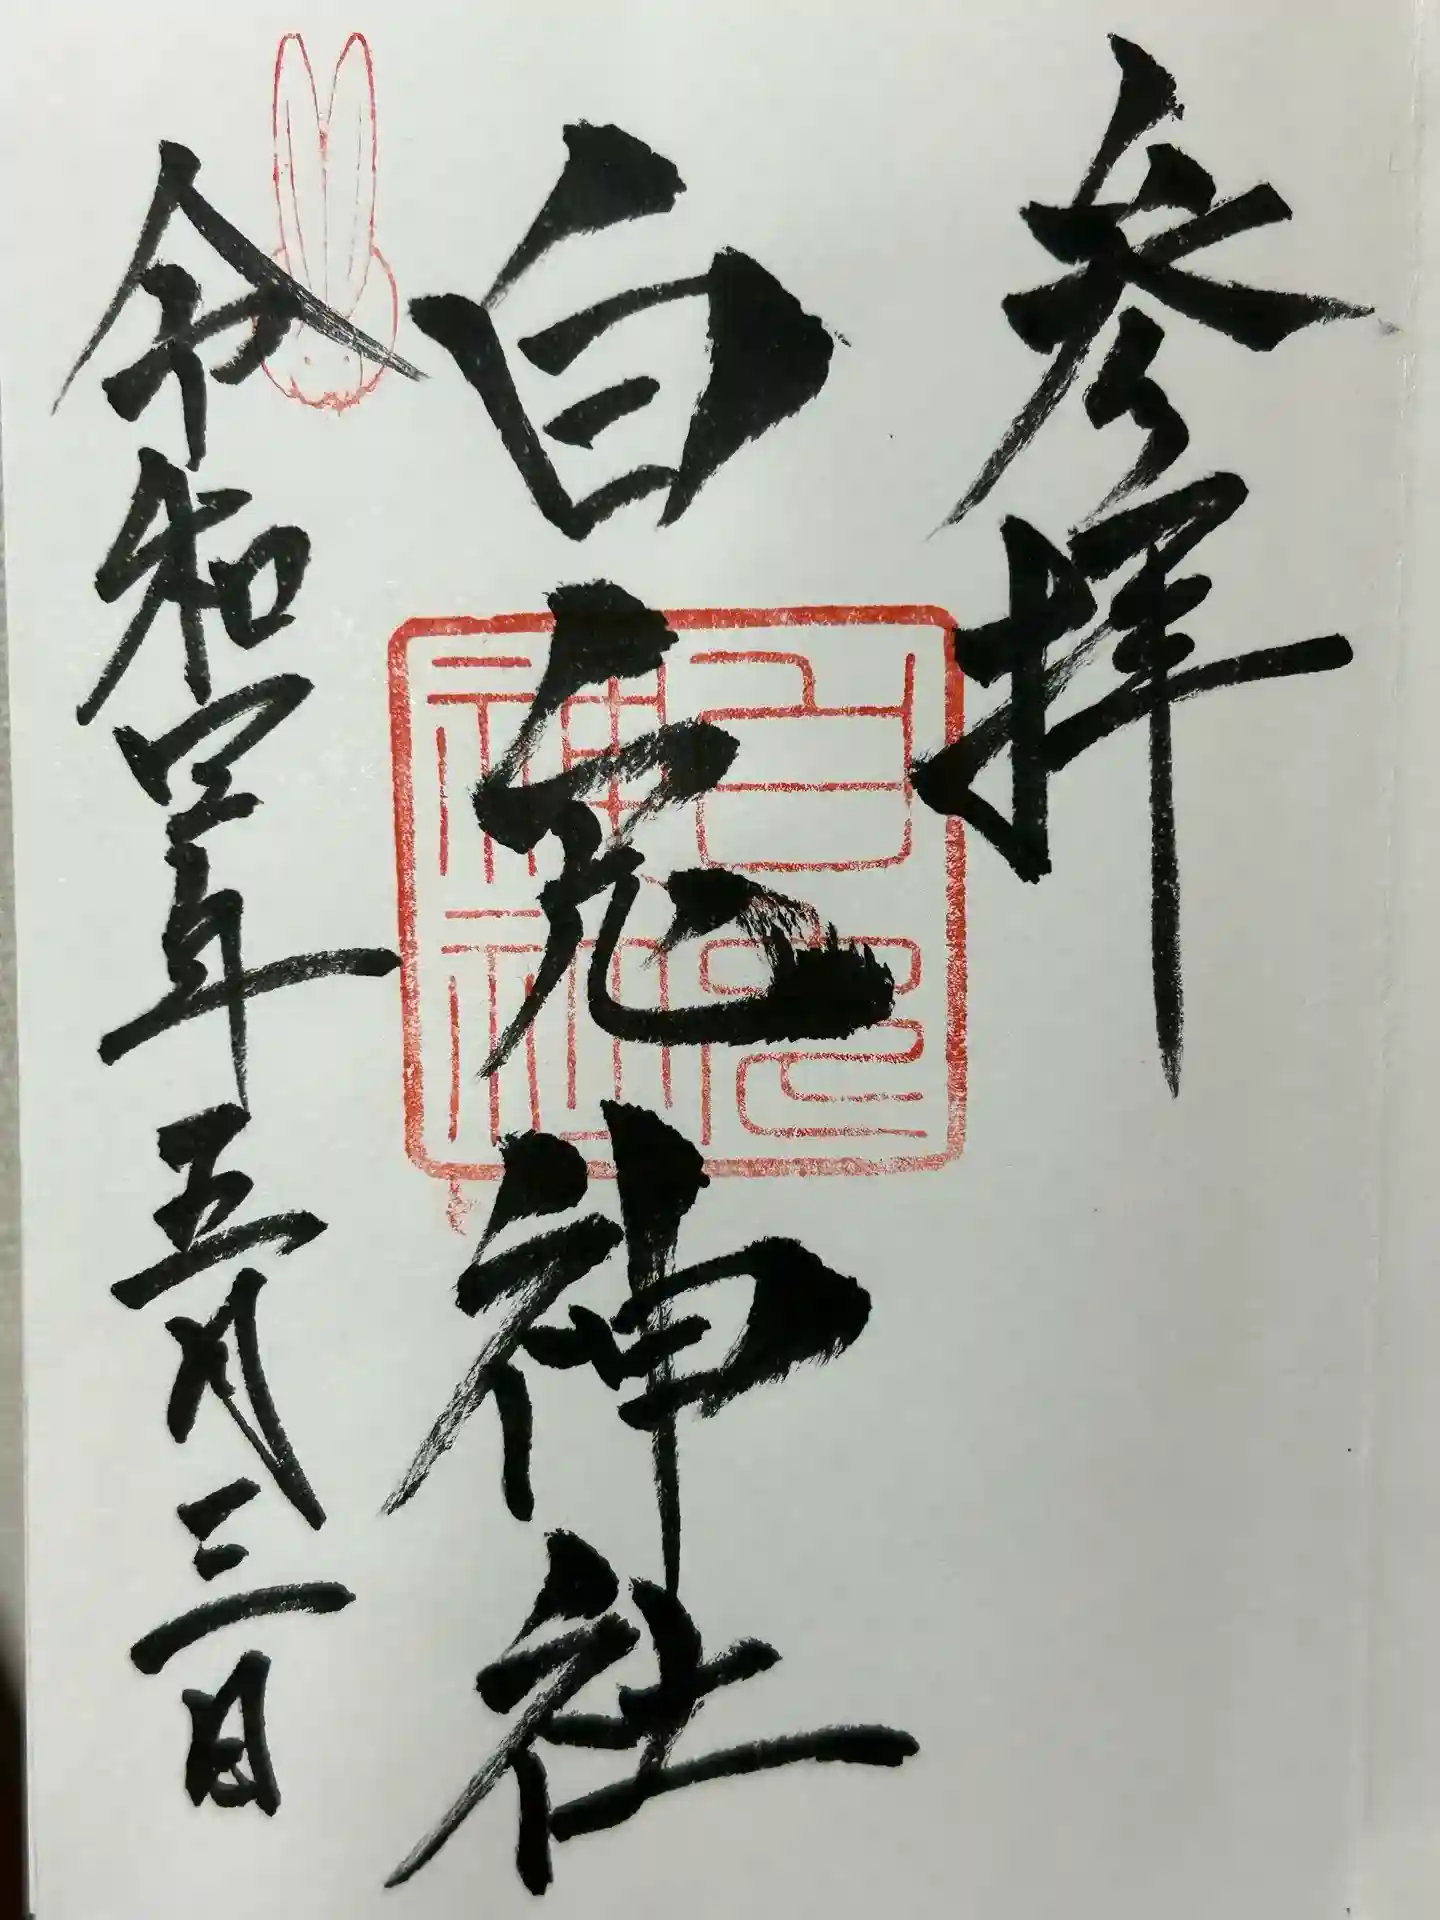 参拝
白兎神社
令和四年五月三日
白兎
神社